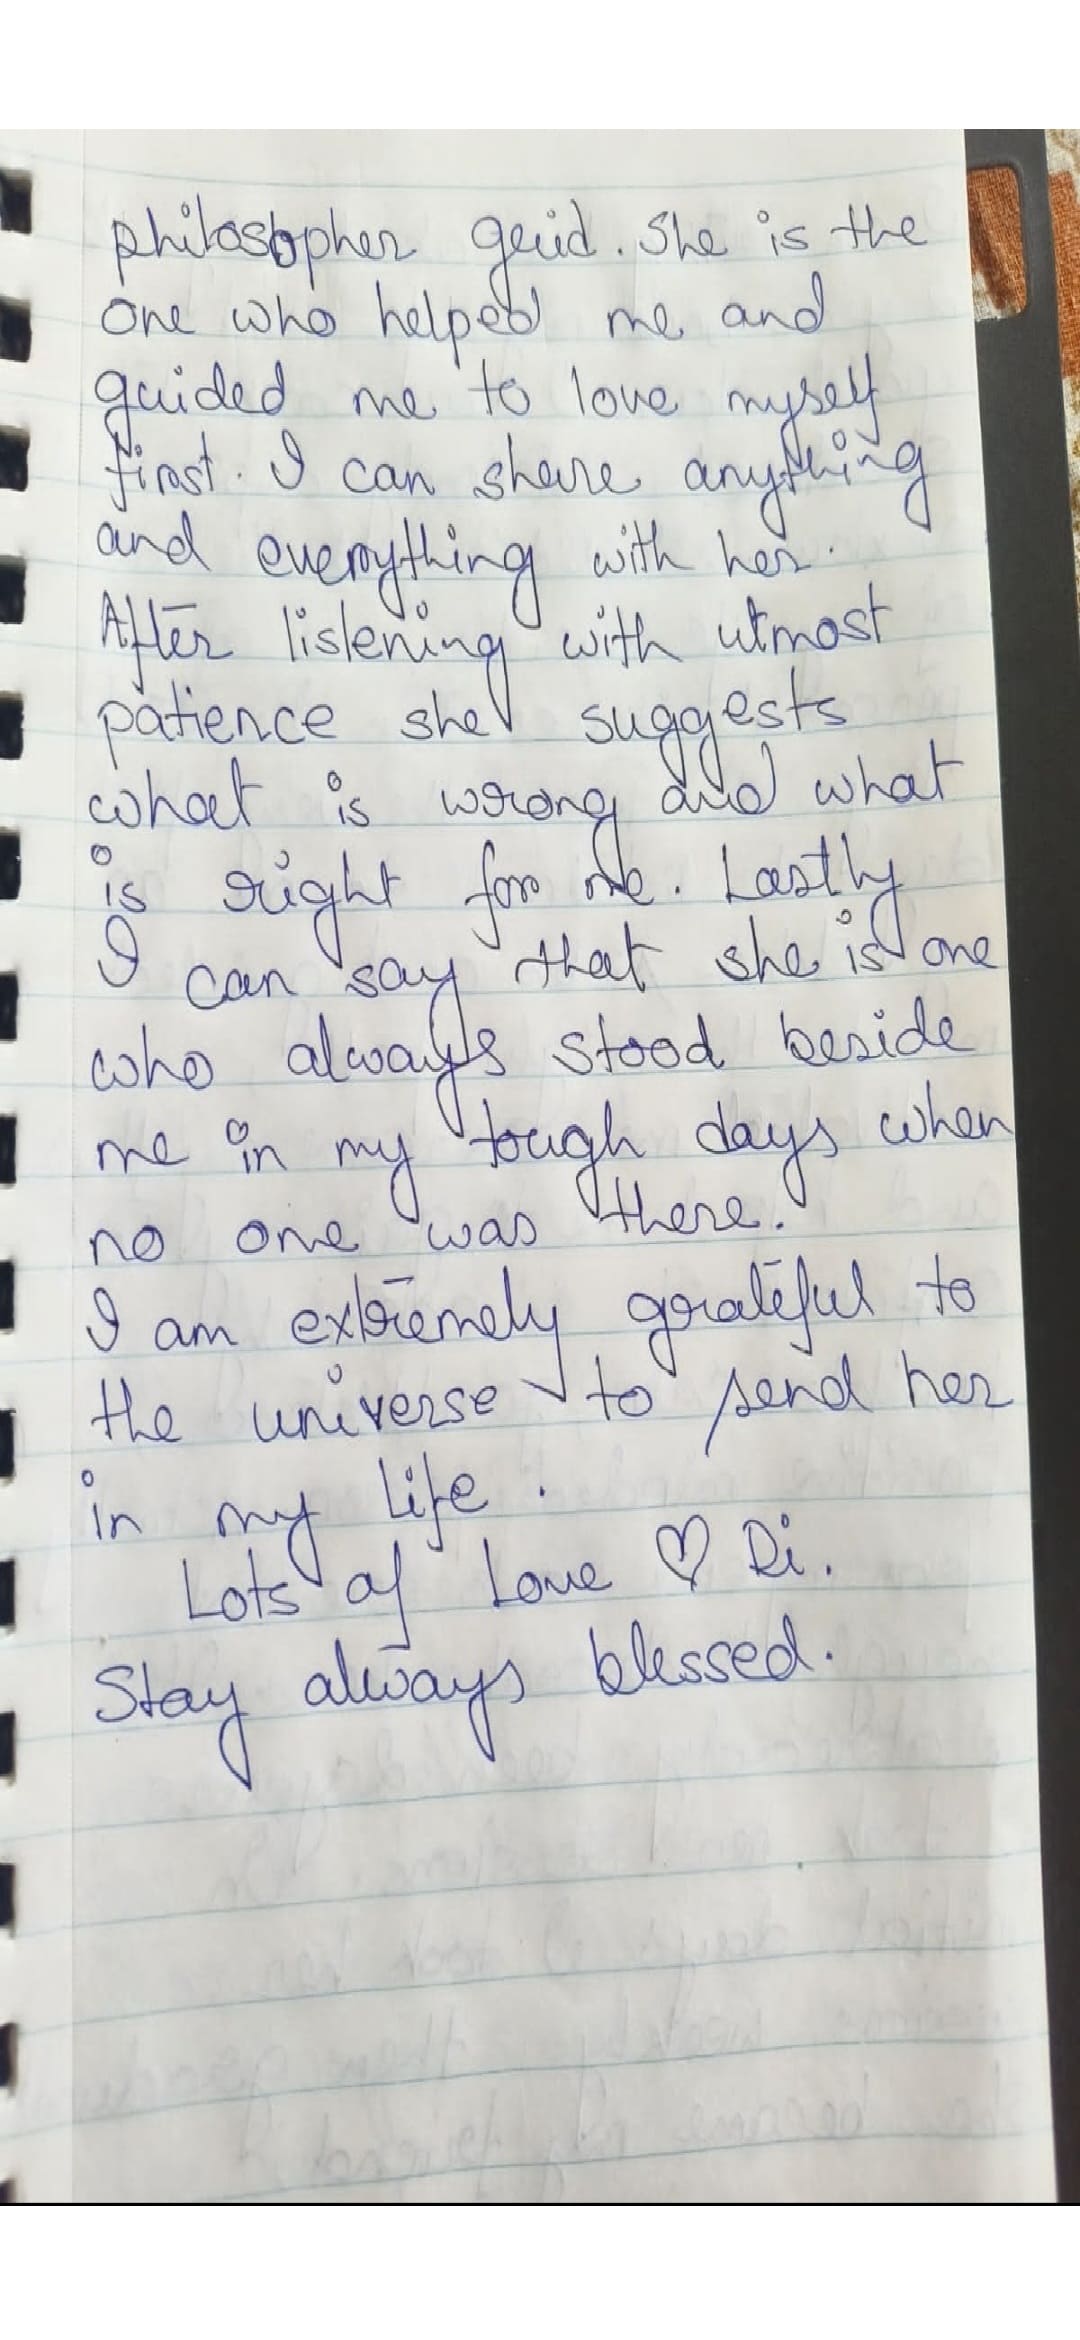 philosopher geuid. She is the
one who helped me and
guided me to love myself
first. I can share anything
and everything with her.
After listening with utmost
patience she suggests
what is wrong and what
is right for me. Lastly
I can say that she is one
who always stood beside
me in my tough days when
no one was there.
I am extremely grateful to
the universe to send her
in my life.
Lots of Love ♡ Di.
Stay always blessed.